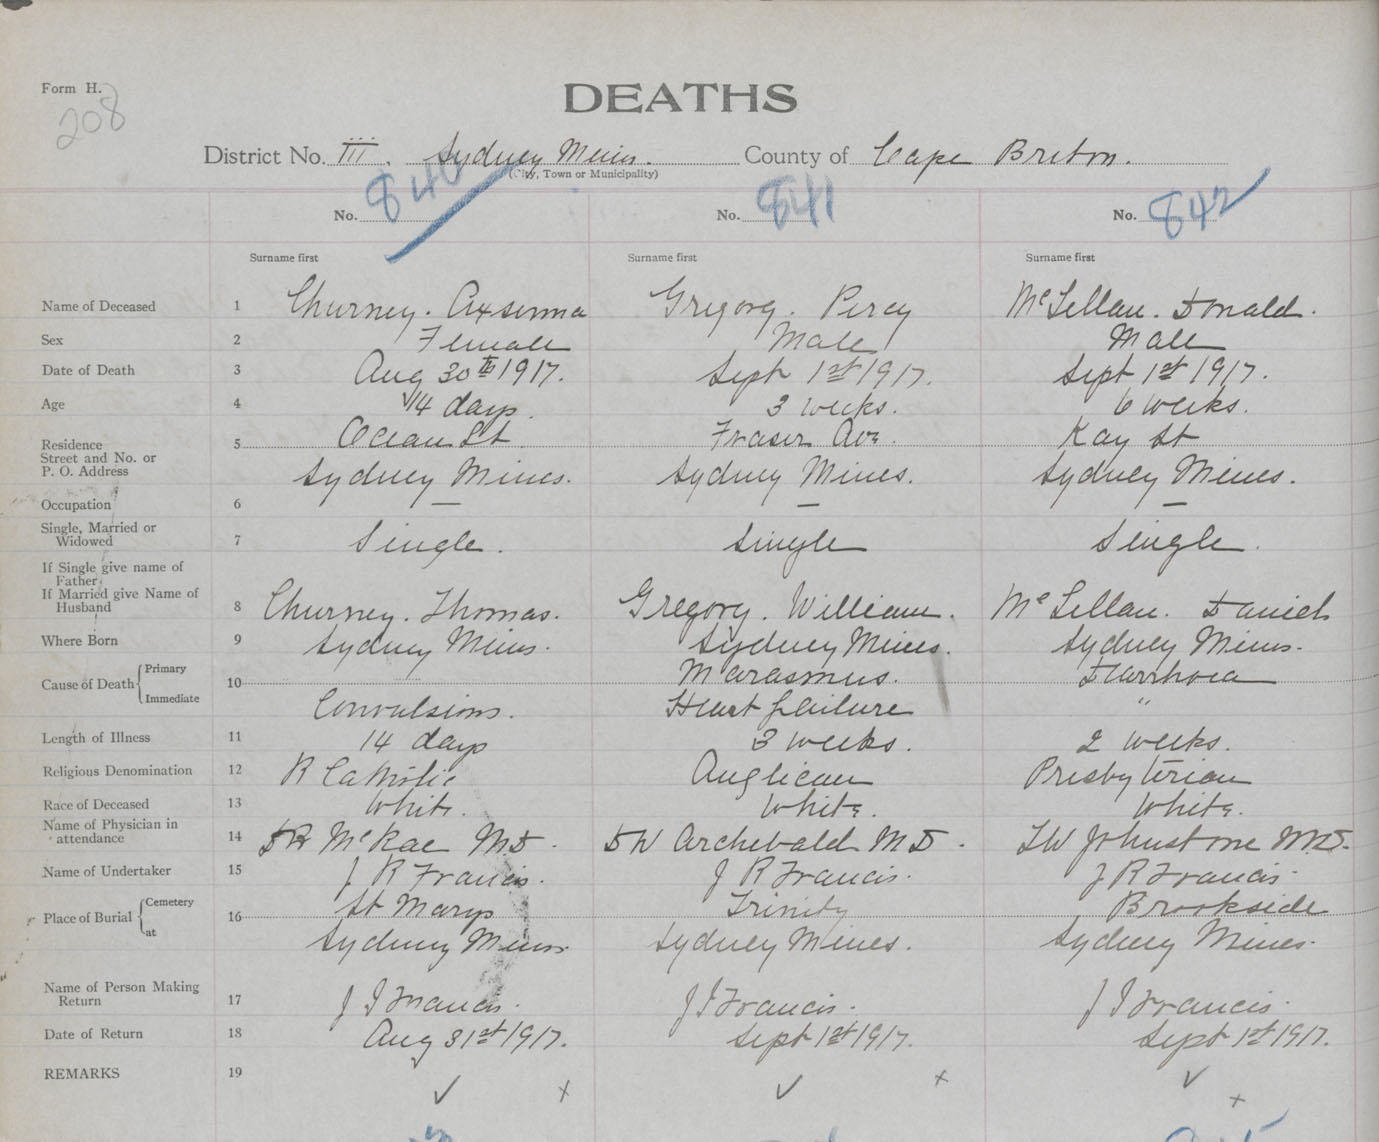 Form H.
208
DEATHS
District No. III. Sydney Mines. County of Cape Breton.
(City, Town or Municipality)
No. 840 No. 841 No. 842
Surname first Surname first Surname first
Name of Deceased 1 Churney. Gregory. Percy McLellan. Donald.
Sex 2 Female Male Male
Date of Death 3 Aug 30th 1917. Sept 1st 1917. Sept 1st 1917.
Age 4 14 days. 3 weeks. 6 weeks.
Residence
Street and No. or
P. O. Address
5 Ocean St Fraser Ave. Kay St
Sydney Mines. Sydney Mines. Sydney Mines.
Occupation 6 — — —
Single, Married or
Widowed 7 Single. Single Single.
If Single give name of
Father
If Married give Name of
Husband 8 Churney. Thomas. Gregory. William. McLellan. Daniel
Where Born 9 Sydney Mines. Sydney Mines. Sydney Mines.
Cause of Death Primary 10 Marasmus. Diarrhoea
Immediate Convulsions. Heart failure "
Length of Illness 11 14 days 3 weeks. 2 weeks.
Religious Denomination 12 R Catholic Anglican Presbyterian
Race of Deceased 13 White. White. White.
Name of Physician in
attendance 14 McRae MD. DW Archebald MD. LW Johnstone MD.
Name of Undertaker 15 J R Francis. J R Francis. J R Francis.
Place of Burial Cemetery 16 St Marys Trinity Brookside
at Sydney Mines Sydney Mines. Sydney Mines.
Name of Person Making
Return 17 J J Francis. J J Francis. J J Francis.
Date of Return 18 Aug 31st 1917. Sept 1st 1917. Sept 1st 1917.
REMARKS 19
✓ x ✓ x ✓ x